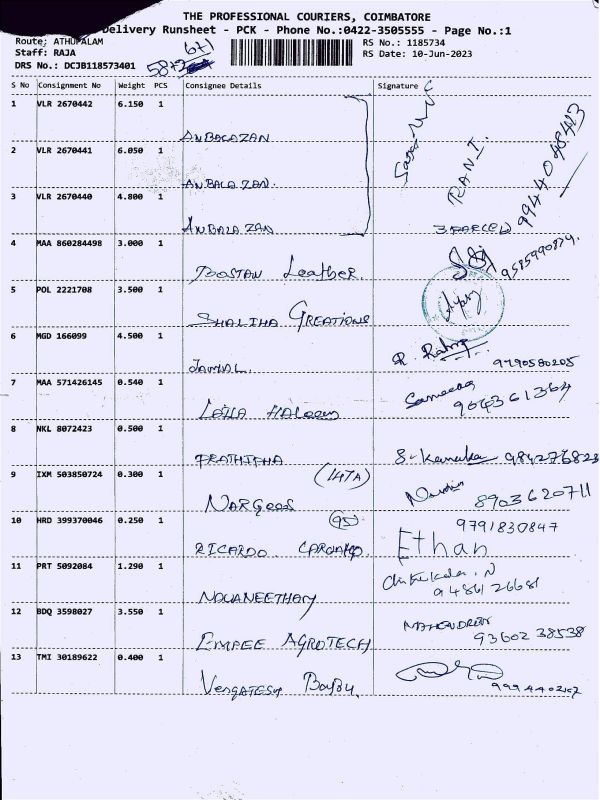 THE PROFESSIONAL COURIERS, COIMBATORE
Delivery Runsheet - PCK - Phone No.:0422-3505555 - Page No.:1
Route: ATHUPALAM
Staff: RAJA
DRS No.: DCJB118573401
671
RS No.: 1185734
RS Date: 10-Jun-2023
S No Consignment No Weight PCS Consignee Details Signature
1 VLR 2670442 6.150 1 ANBALAZAN
2 VLR 2670441 6.050 1 ANBALAZAN. RANI.
3 VLR 2670440 4.800 1 ANBALAZAN 3 PARCEL 9944048413
4 MAA 860284498 3.000 1 BOSTAN Leather 9585990874.
5 POL 2221708 3.500 1 SHALIHA CREATIONS
6 MGD 166099 4.500 1 JAMAL. 9790580205
7 MAA 571426145 0.540 1 LAILA HALEEM Sameera 904361364
8 NKL 8072423 0.500 1 PRATHIPHA S. Kanaka 9842776823
9 IXM 503850724 0.300 1 (147A) NARGEES 8903620711
10 HRD 399370046 0.250 1 (95) RICARDO 9791830847 Ethan
11 PRT 5092084 1.290 1 NAVANEETHAN 9486126681
12 BDQ 3598027 3.550 1 EMPEE AGROTECH MAHENDREN 9360238538
13 TMI 30189622 0.400 1 VENGATESH BABU.